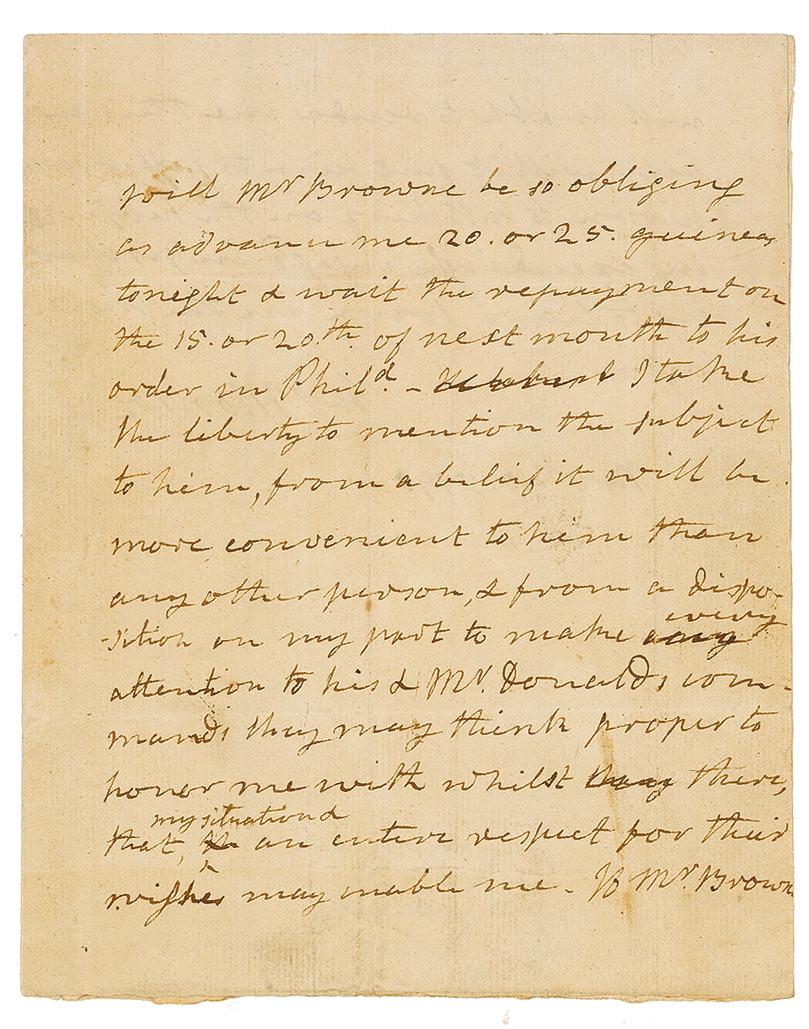 will Mr Browne be so obliging
as advance me 20. or 25. guineas
tonight & wait the repayment on
the 15. or 20.th of next month to his
order in Phild. - I take
the liberty to mention the subject
to him, from a belief it will be
more convenient to him than
any other person, & from a dispo-
-sition on my part to make any every
attention to his & Mr. Donalds com-
mands they may think proper to
honor me with whilst they there,
that, my situation &
an entire respect for their
wishes may enable me - If Mr. Brown